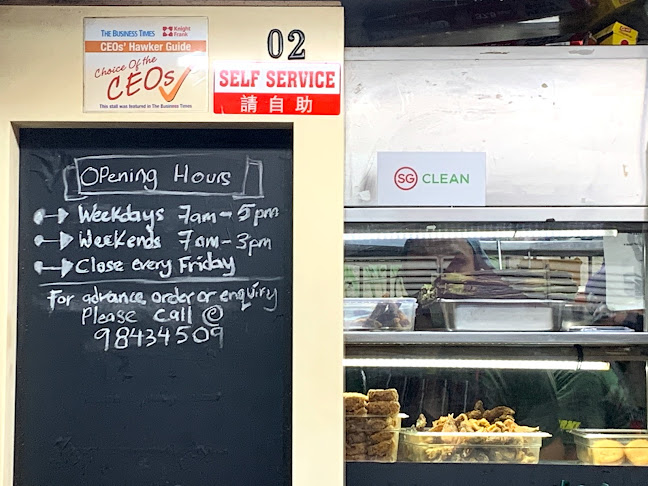 THE BUSINESS TIMES Knight Frank
CEOs' Hawker Guide
Choice Of the
CEOs
This stall was featured in The Business Times
02
SELF SERVICE
請自助
SG CLEAN
Opening Hours
Weekdays 7am - 5pm
Weekends 7am - 3pm
Close every Friday
For advance order or enquiry
Please call @
98434509